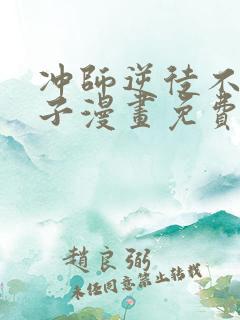 冲師逆徒不
子漫畫免費
趙良弼
未经同意禁止转载